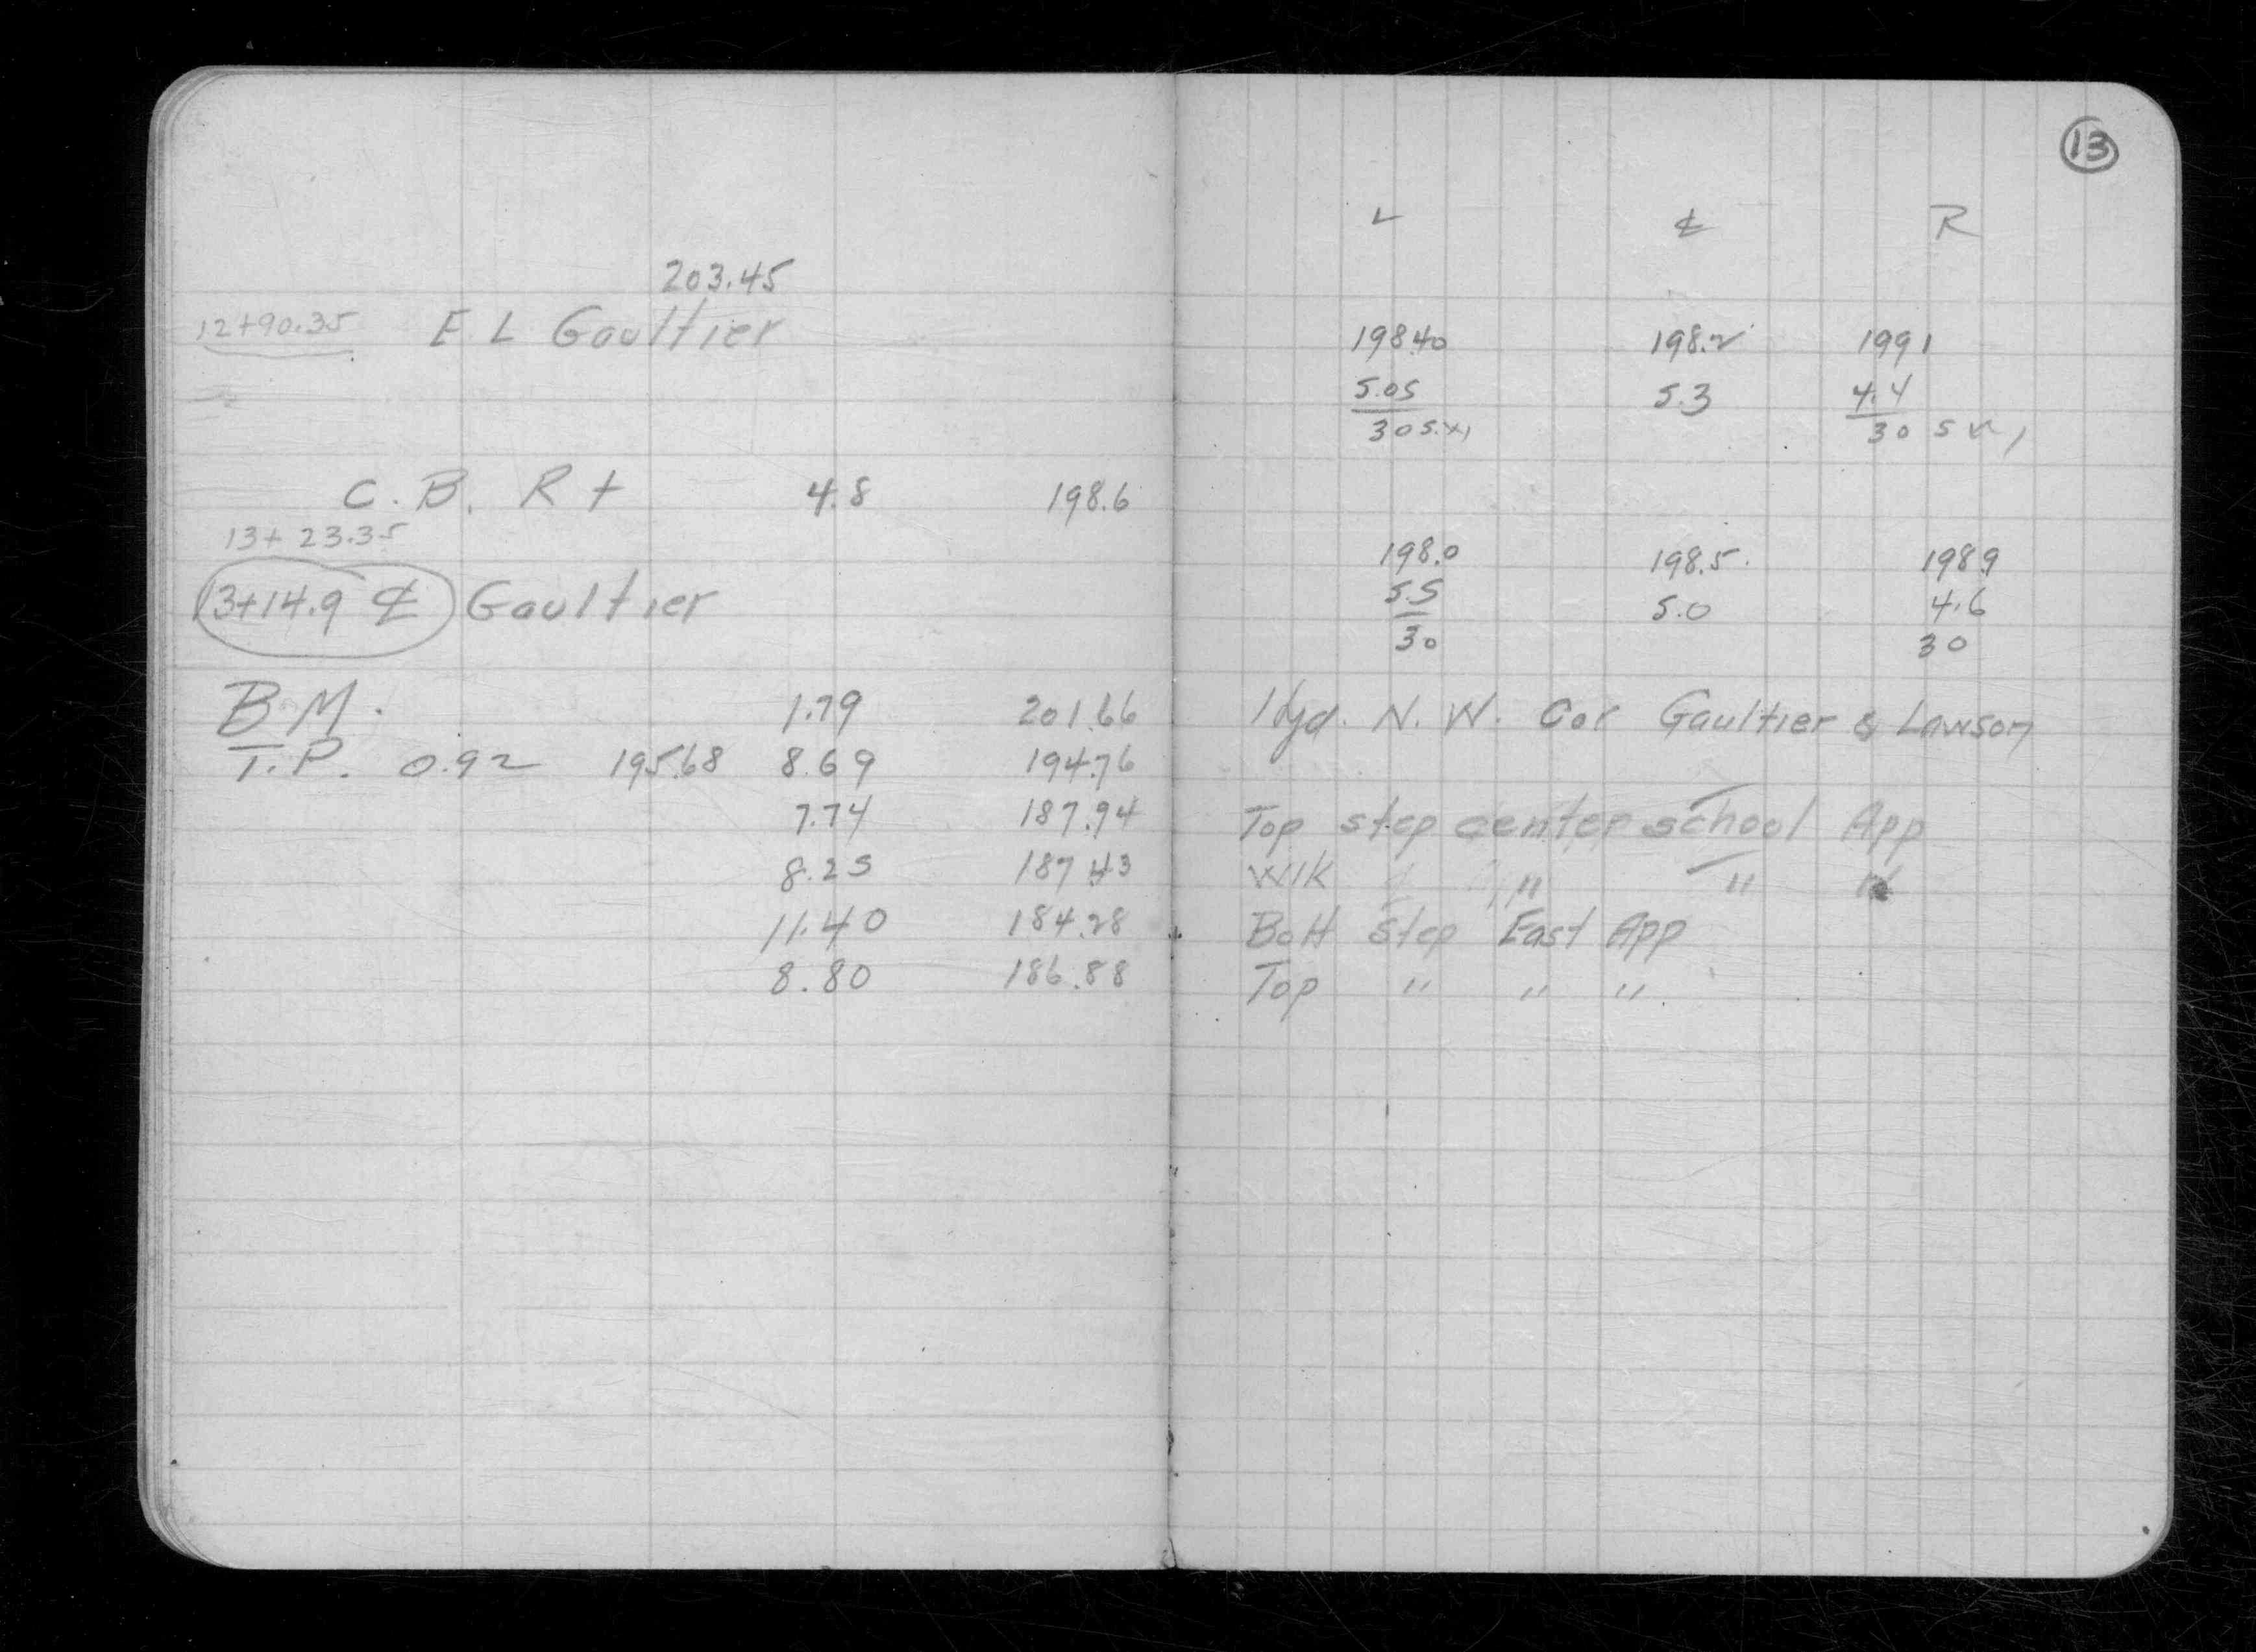 13
L ⅊ R
203.45
12+90.35 E L Gaultier 198.40 198.2 199.1
5.05 5.3 4.4
30 30
C. B. Rt 4.8 198.6
13+23.35
198.0 198.5 198.9
13+14.9 ℄ Gaultier 5.5 5.0 4.6
30 30
B.M. 1.79 201.66 Hyd. N. W. Cor Gaultier & Lawson
T.P. 0.92 195.68 8.69 194.76
7.74 187.94 Top step center school App
8.25 187.43 Wlk " " "
11.40 184.28 Bott step East App
8.80 186.88 Top " " "